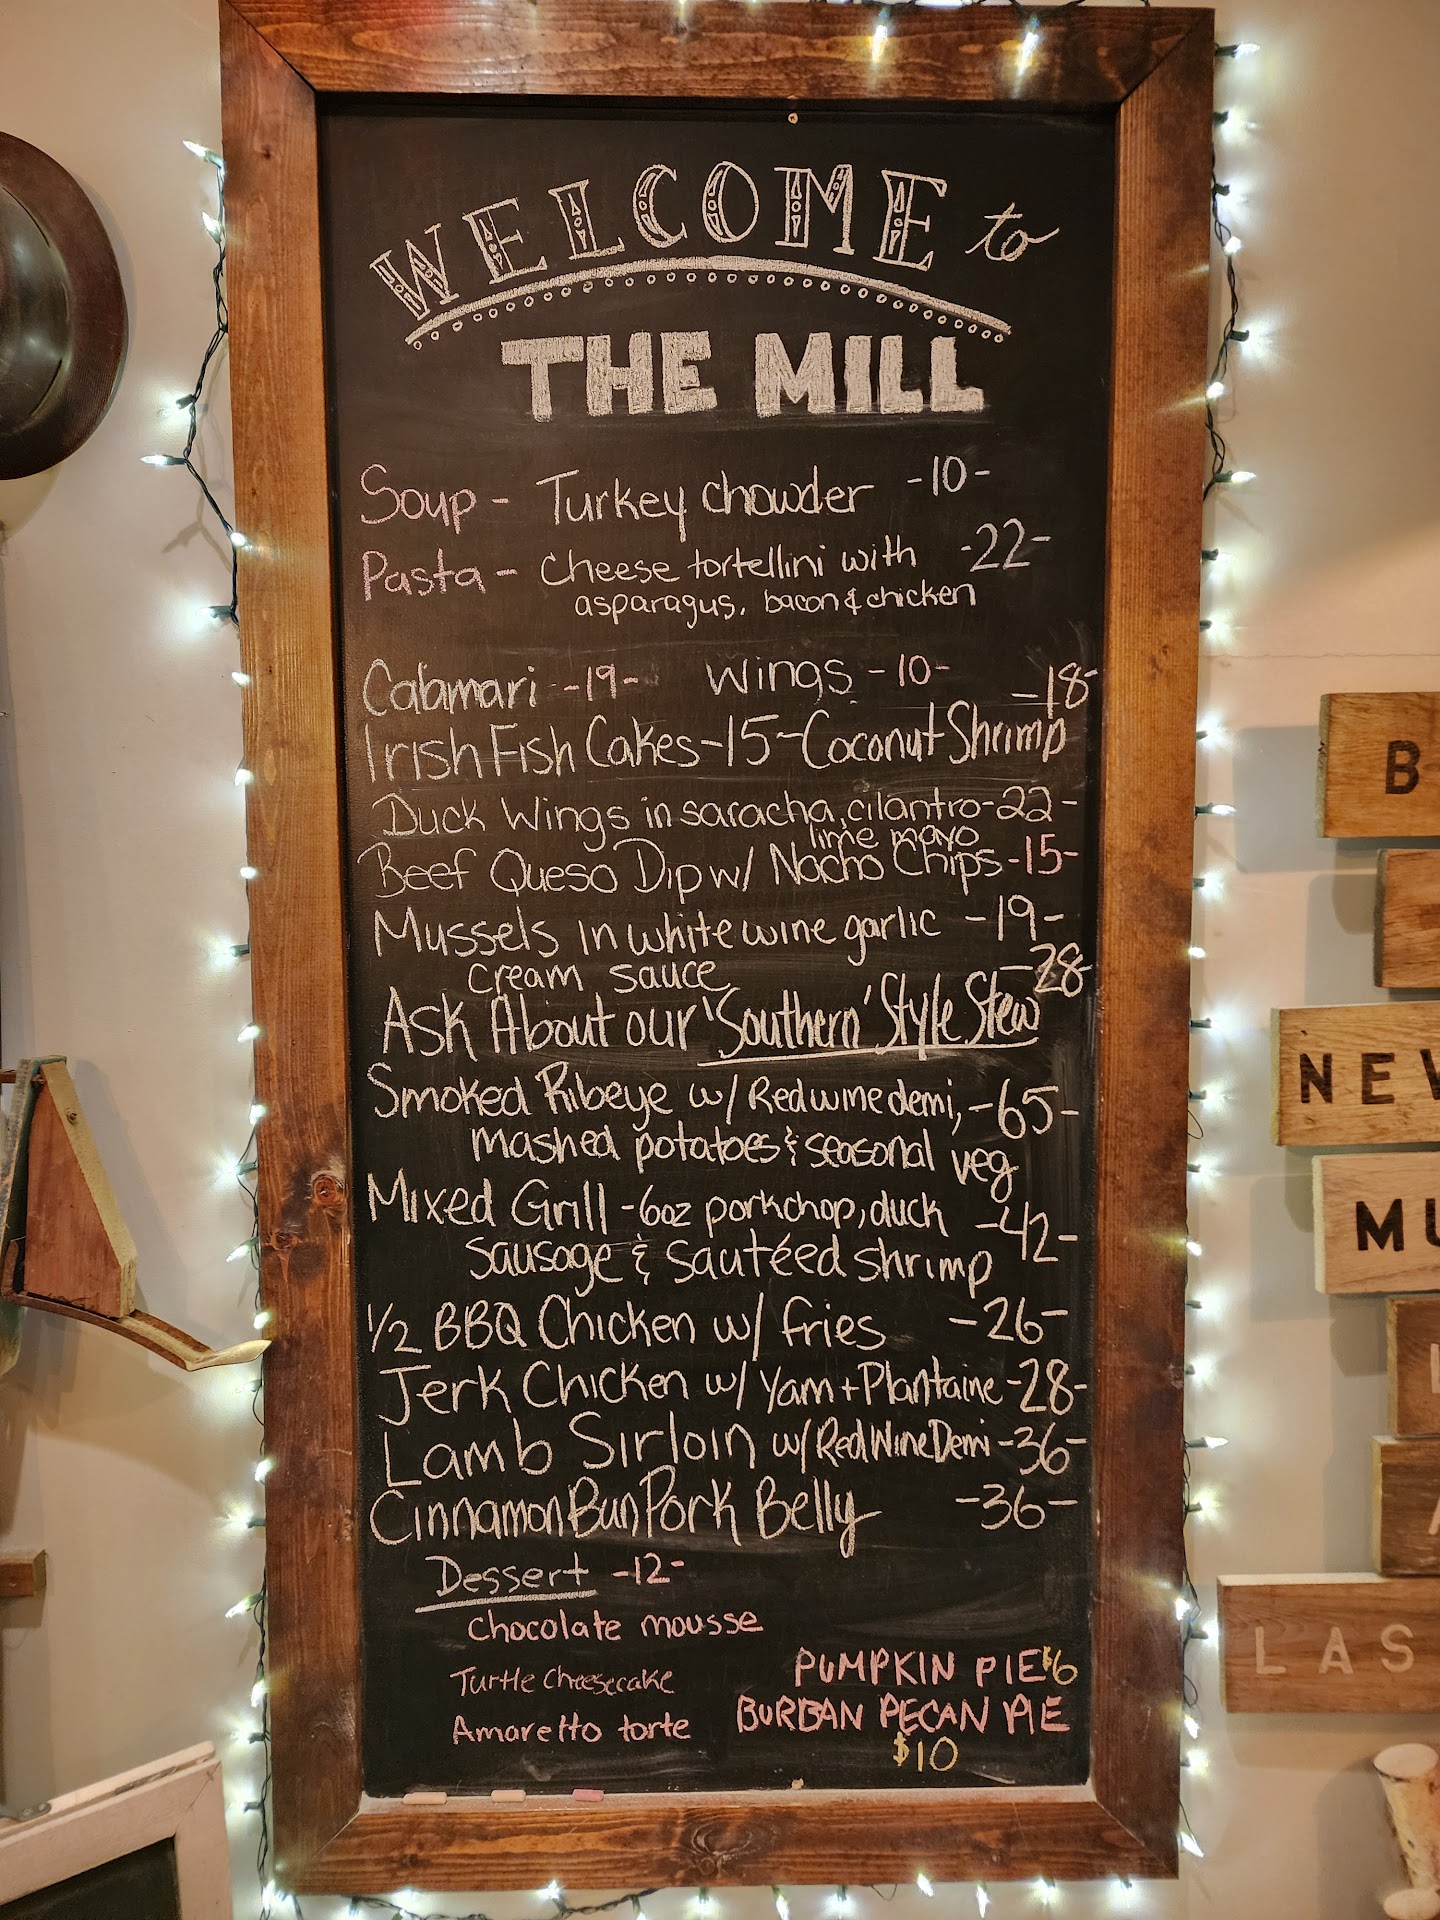 WELCOME to
THE MILL
Soup - Turkey chowder -10-
Pasta - Cheese tortellini with -22-
asparagus, bacon & chicken
Calamari -19- Wings -10-
-18-
Irish Fish Cakes -15- Coconut Shrimp
Duck Wings in saracha, cilantro -22-
lime mayo
Beef Queso Dip w/ Nacho Chips -15-
Mussels in white wine garlic -19-
cream sauce -28-
Ask About our 'Southern' Style Stew
Smoked Ribeye w/ Red wine demi, -65-
mashed potatoes & seasonal veg
Mixed Grill - 6oz porkchop, duck -42-
sausage & sautéed shrimp
1/2 BBQ Chicken w/ fries -26-
Jerk Chicken w/ Yam + Plantaine -28-
Lamb Sirloin w/ Red Wine Demi -36-
Cinnamon Bun Pork Belly -36-
Dessert -12-
Chocolate mousse
Turtle Cheesecake
Amaretto torte
PUMPKIN PIE $6
BURBAN PECAN PIE
$10
B
NEW
MU
LAS